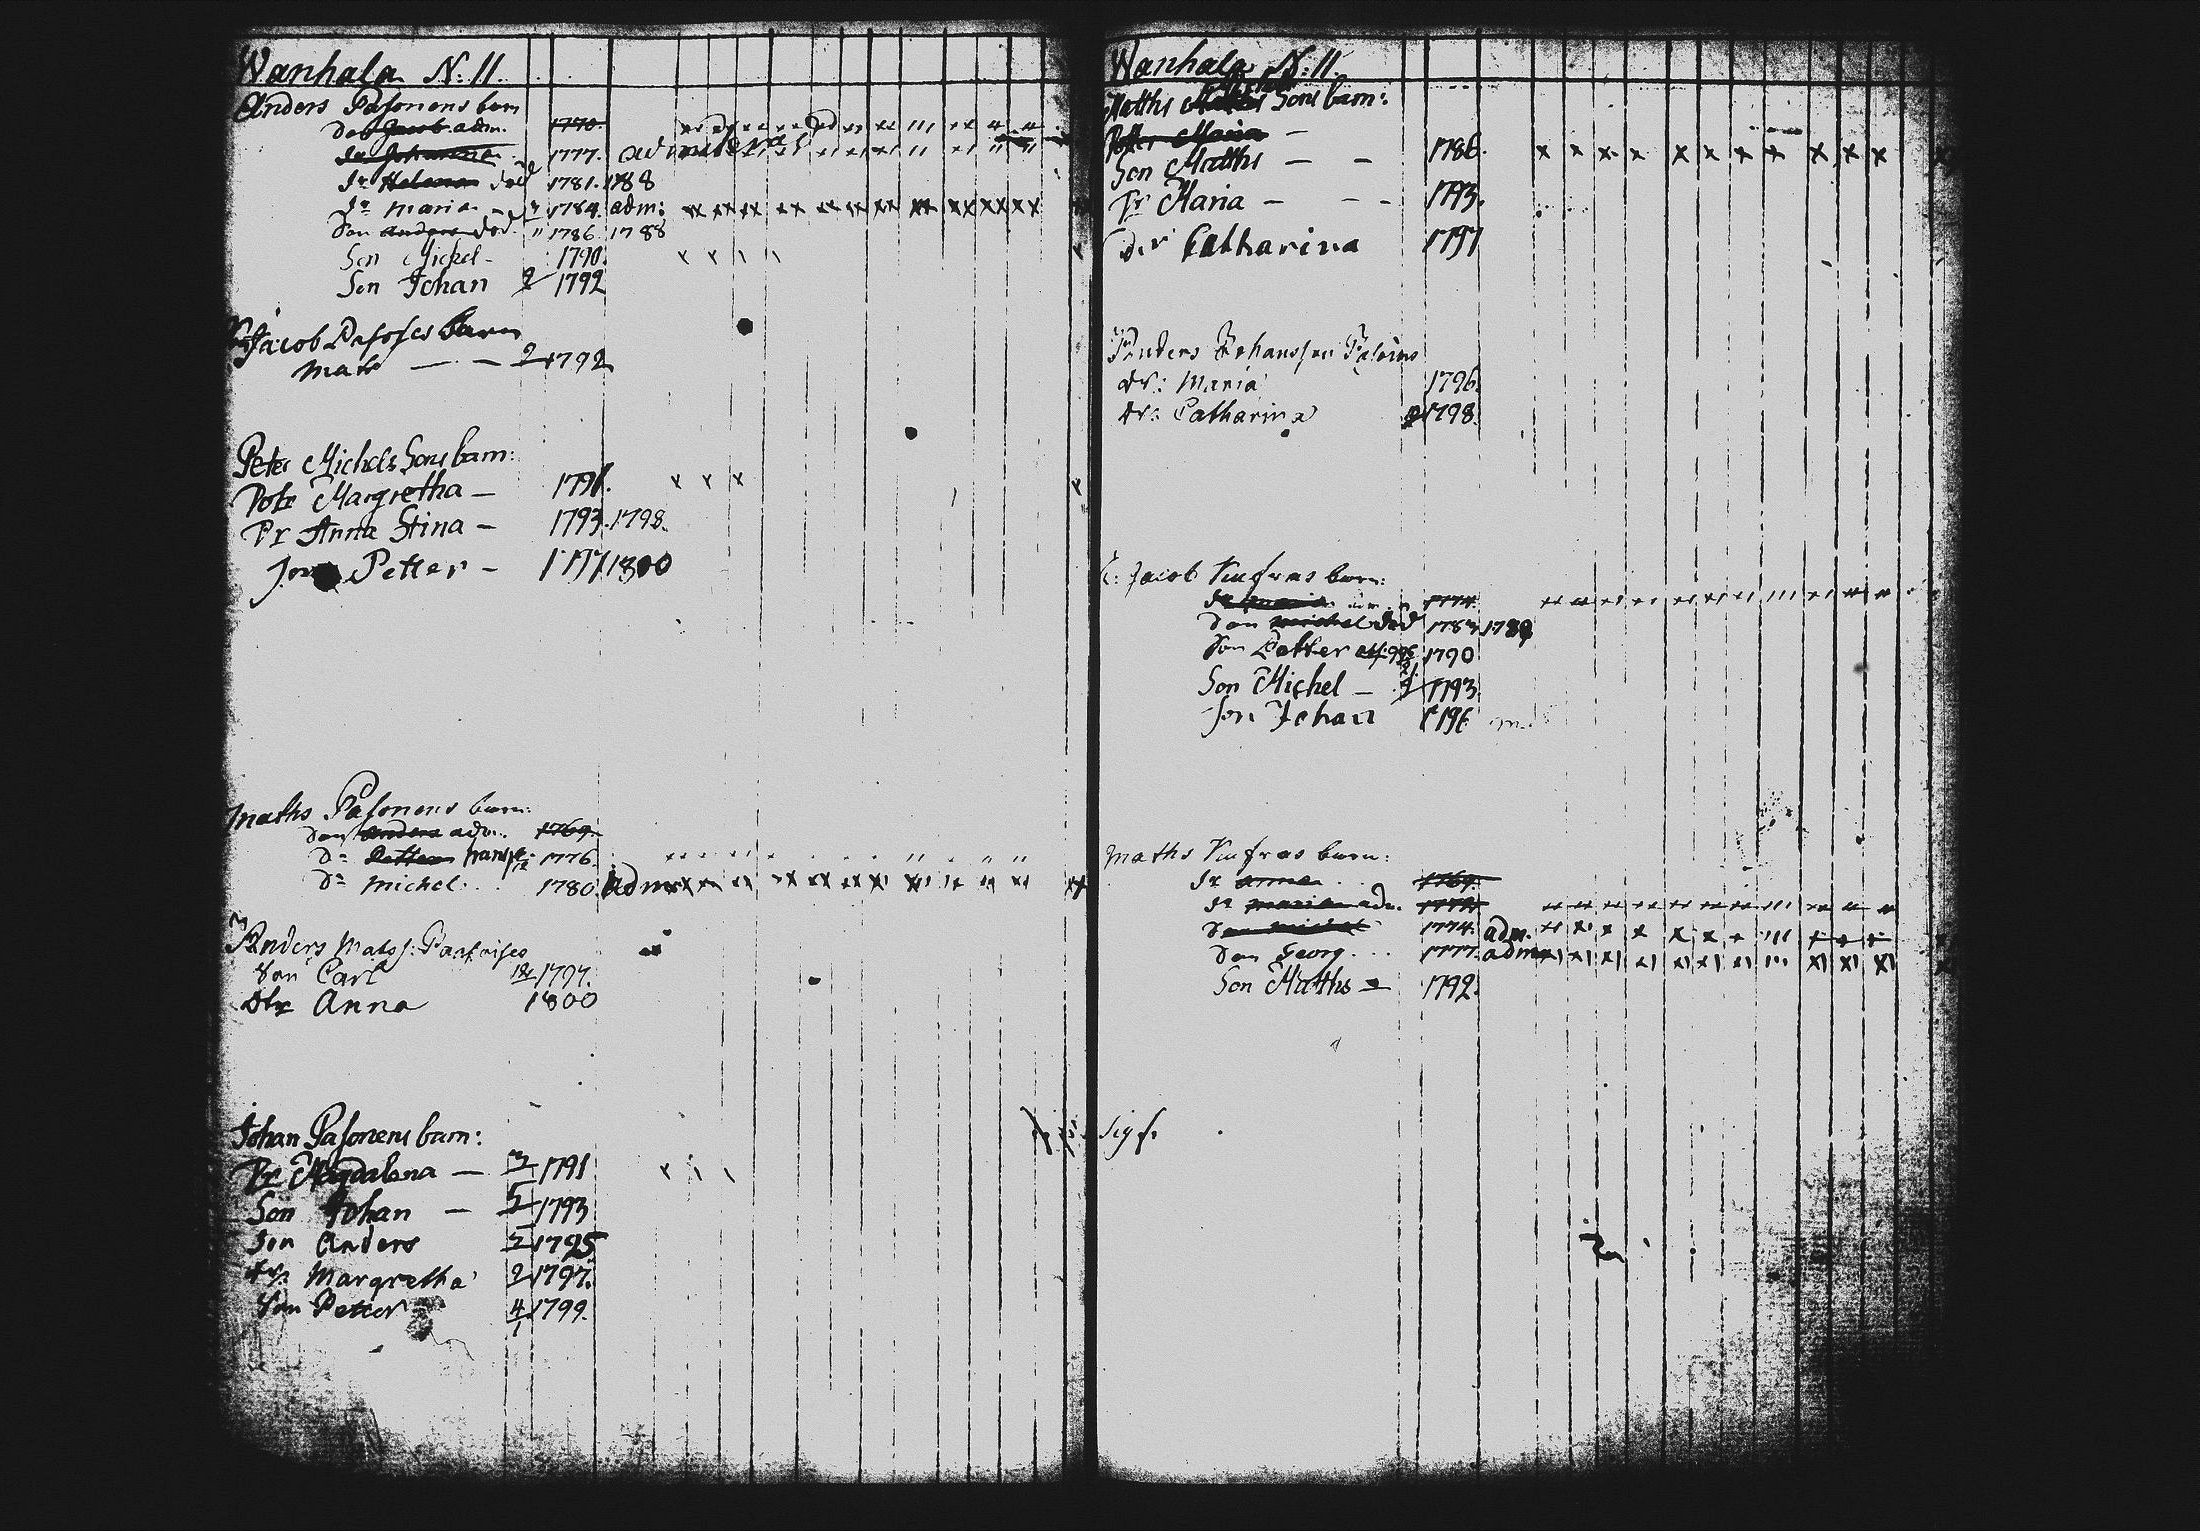 Wanhala N:11.
Anders Pasonens barn
Jacob adm. 1770.
Johanna 1777. admitterad
Dr Helena död 1781. 1788
Dr Maria 1784. adm:
Son Anders död 1786. 1788
Son Michel 1790.
Son Johan 2 1792
Jacob barn
Mats — — 2 1792
Peter Michels Sons barn:
Dotr Margretha — 1791.
Dr Anna Stina — 1793. 1798.
Son Petter — 1797 1800
Maths Pasonens barn:
Son Anders adm. 1769.
Dn Petter 1776.
Dn Michel 1780. adm
Anders Mats
Son Carl 1797.
Dtr Anna 1800
Johan Pasonens barn:
Dr Magdalena — 3 1791
Son Johan — 5 1793
Son Anders 1795
dr: Margretha 2 1797.
Son Petter 4/1 1799.
Wanhala N:11.
Matths Sons barn:
Doter Maria —
Son Matths — — 1786.
Dr Maria — — 1793.
Dr Catharina 1797
Anders Johansson
dr: Maria 1796.
dr: Catharina 1798.
Jacob barn:
1774.
Son Michel död 1789
Son Petter 1790
Son Michel — 1793.
Son Johan 1796
Maths barn:
Dr Anna 1769.
Dr Maria adm.
Son Michel 1774. adm.
Son Georg 1777. adm
Son Maths — 1792.